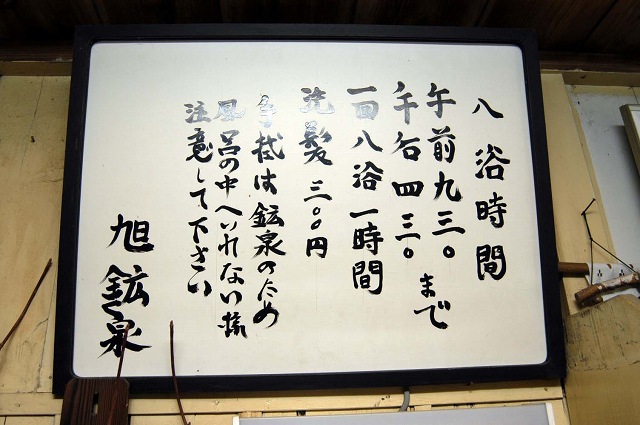 入浴時間
午前九三〇
午后四三〇まで
一回入浴一時間
洗髪三〇〇円
手拭は鉱泉のため
風呂の中へいれない様
注意して下さい
旭鉱泉